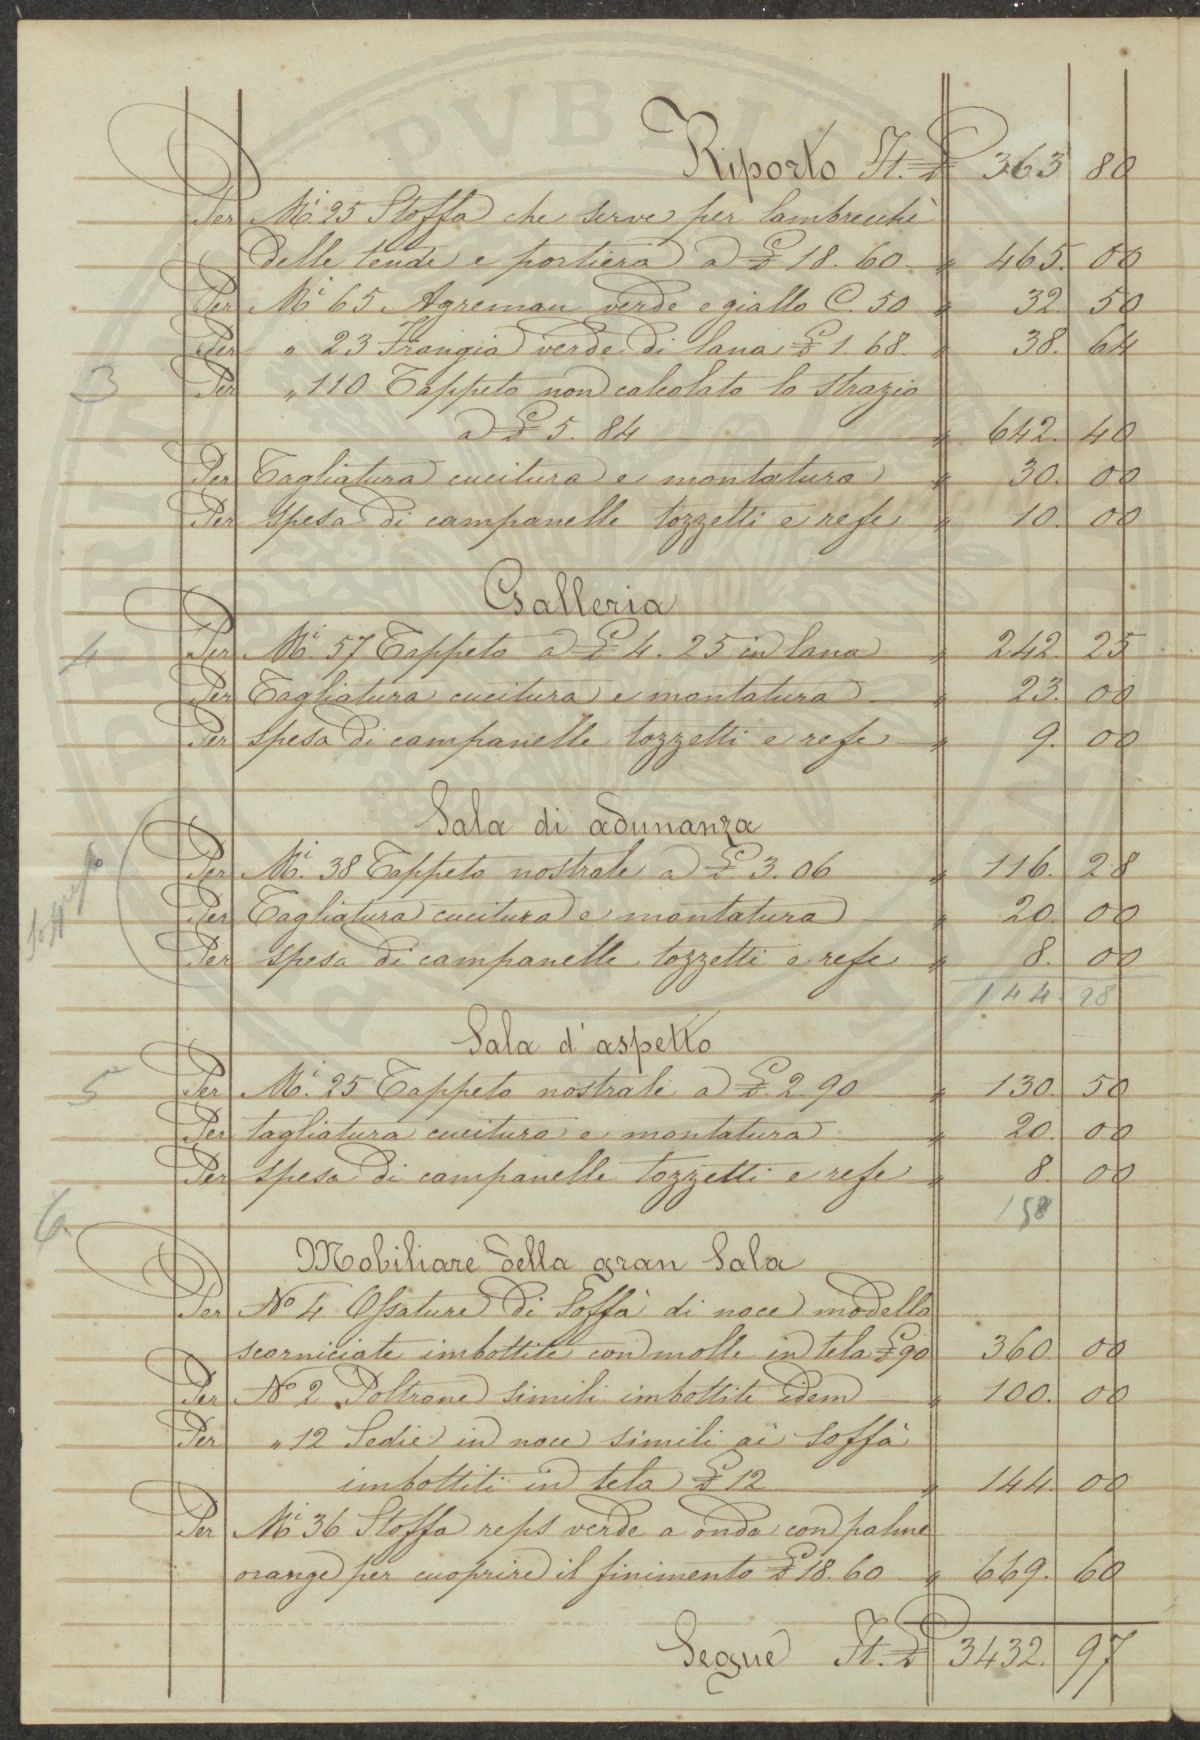 Riporto It. £ 363 80
Per Mi. 25 Stoffa che serve per lambrecchè
delle tende e portiera a £ 18. 60 " 465. 00
Per Mi 65 Agreman verde e giallo C. 50 " 32. 50
Per " 23 Frangia verde di lana £ 1. 68 " 38. 64
3 Per " 110 Tappeto non calcolato lo strazio
a £ 5. 84 " 642. 40
Per Tagliatura cucitura e montatura " 30. 00
Per spesa di campanelle tozzetti e refe " 10. 00
Galleria
4 Per Mi. 57 Tappeto a £ 4. 25 in lana " 242. 25
Per Tagliatura cucitura e montatura " 23. 00
Per spesa di campanelle tozzetti e refe " 9. 00
Sala di adunanza
Per Mi. 38 Tappeto nostrale a £ 3. 06 " 116. 28
Per Tagliatura cucitura e montatura " 20. 00
Per spesa di campanelle tozzetti e refe " 8. 00
144. 28
Sala d'aspetto
5 Per Mi. 25 Tappeto nostrale a £. 2. 90 " 130. 50
Per tagliatura cucitura e montatura " 20. 00
Per spesa di campanelle tozzetti e refe " 8. 00
158
6
Mobiliare della gran Sala
Per No 4 Ossature di Soffà di noce modello
scorniciate imbottite con molle in tela £ 90 360. 00
Per No 2 Poltrone simili imbottite idem " 100. 00
Per " 12 Sedie in noce simili ai Soffà
imbottiti in tela £ 12 " 144. 00
Per Mi 36 Stoffa reps verde a onda con palme
orange per cuoprire il finimento £ 18. 60 " 669. 60
Segue It. £ 3432. 97